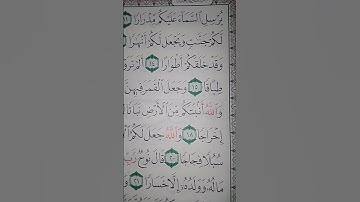 يُرْسِلِ ٱلسَّمَآءَ عَلَيْكُم مِّدْرَارًا
لَّكُمْ جَنَّٰتٍ وَيَجْعَل لَّكُمْ أَنْهَٰرًا
وَقَدْ خَلَقَكُمْ أَطْوَارًا ١٤ أَلَمْ تَرَوْا۟
طِبَاقًا ١٥ وَجَعَلَ ٱلْقَمَرَ فِيهِنَّ
وَٱللَّهُ أَنۢبَتَكُم مِّنَ ٱلْأَرْضِ نَبَاتًا
إِخْرَاجًا ١٨ وَٱللَّهُ جَعَلَ لَكُمُ
سُبُلًا فِجَاجًا ٢٠ قَالَ نُوحٌ رَّبِّ
مَالُهُۥ وَوَلَدُهُۥٓ إِلَّا خَسَارًا ٢١